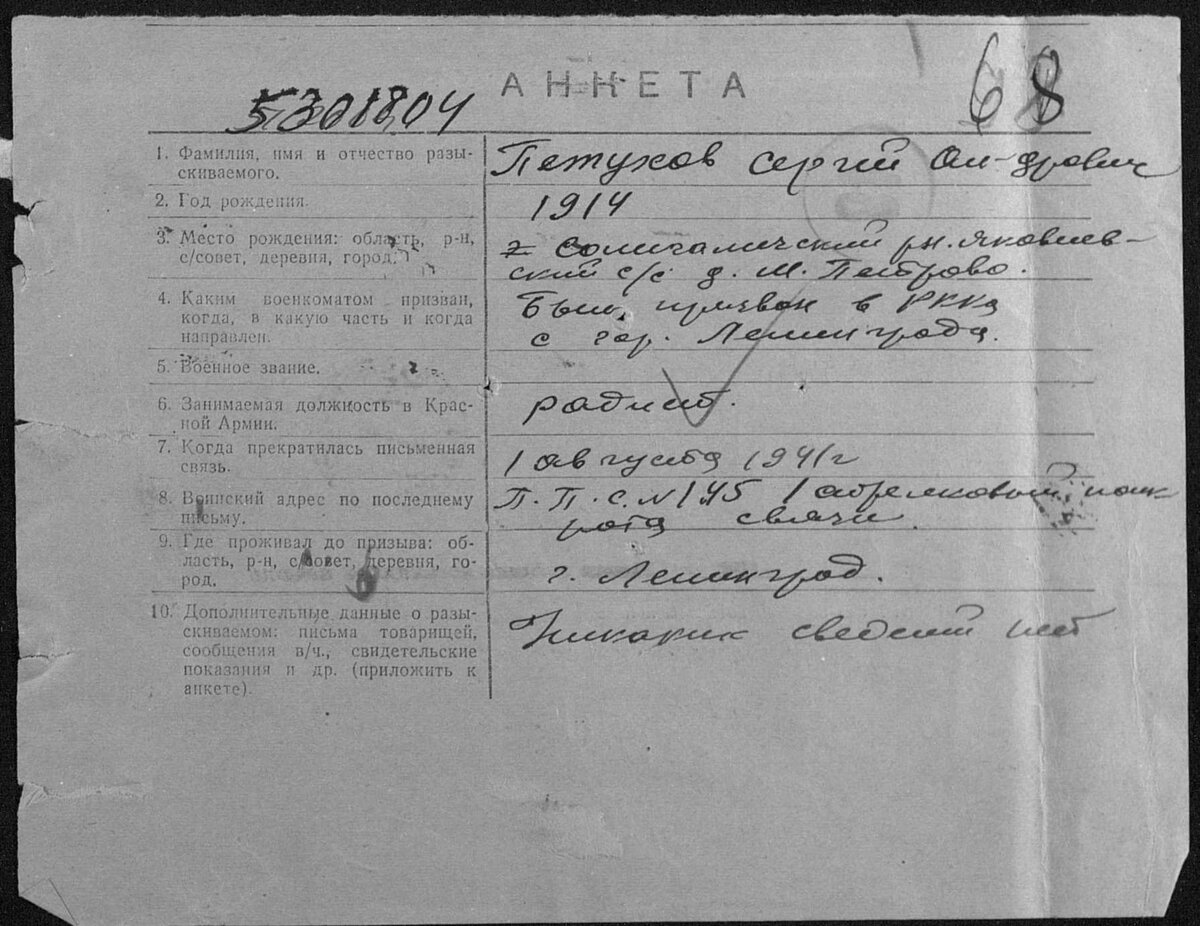 АНКЕТА
5301804
68
1. Фамилия, имя и отчество разы-
скиваемого.
Петухов Сергий Ол-дрович
2. Год рождения.
1914
3. Место рождения: область, р-н,
с/совет, деревня, город.
Солигаличский рн. Яковлев-
ский с/с д. М. Петрово.
4. Каким военкоматом призван,
когда, в какую часть и когда
направлен.
Был призван в РККА
с гор. Ленинграда.
5. Военное звание.
6. Занимаемая должность в Крас-
ной Армии.
радист.
7. Когда прекратилась письменная
связь.
1 августа 1941г
8. Воинский адрес по последнему
письму.
П.П.С. №145 1 стрелковый полк
рота связи.
9. Где проживал до призыва: об-
ласть, р-н, с/совет, деревня, го-
род.
г. Ленинград.
10. Дополнительные данные о разы-
скиваемом: письма товарищей,
сообщения в/ч., свидетельские
показания и др. (приложить к
анкете).
Никаких сведений нет